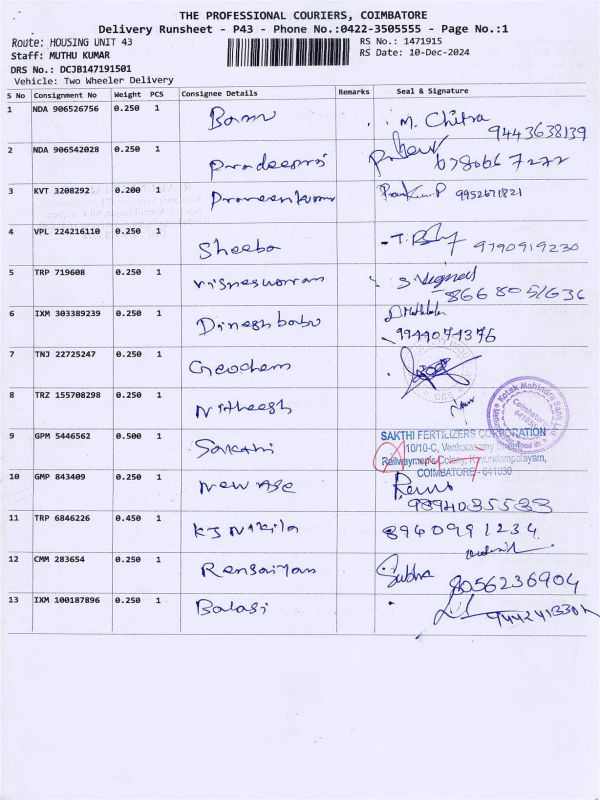 THE PROFESSIONAL COURIERS, COIMBATORE
Delivery Runsheet - P43 - Phone No.:0422-3505555 - Page No.:1
Route: HOUSING UNIT 43 RS No.: 1471915
Staff: MUTHU KUMAR RS Date: 10-Dec-2024
DRS No.: DCJB147191501
Vehicle: Two Wheeler Delivery
S No Consignment No Weight PCS Consignee Details Remarks Seal & Signature
1 NDA 906526756 0.250 1 M. Chitra
9443638139
2 NDA 906542028 0.250 1
3 KVT 3208292 0.200 1 Praveenkumar 9952671821
4 VPL 224216110 0.250 1 Sheeba 9790919230
5 TRP 719608 0.250 1 Visneswaran
6 IXM 303389239 0.250 1 Dineshbabu
9944074376
7 TNJ 22725247 0.250 1 Geochem
8 TRZ 155708298 0.250 1 Nitheesh
Kotak Mahindra Bank Ltd.
Coimbatore
641030
9 GPM 5446562 0.500 1 Sakthi
SAKTHI FERTILIZERS CORPORATION
10/10-C, Venkatasamy
Railwaymen's Colony, Kavundampalayam,
COIMBATORE - 641030
10 GMP 843409 0.250 1 New Age
9894035583
11 TRP 6846226 0.450 1 KJ Nikila 8940991234
12 CMM 283654 0.250 1 Subha 8056236904
13 IXM 100187896 0.250 1 Balaji